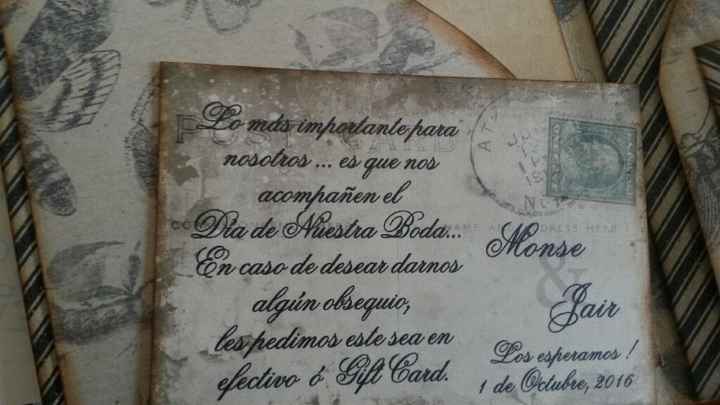 Lo más importante para
nosotros ... es que nos
acompañen el
Día de Nuestra Boda...
En caso de desear darnos
algún obsequio,
les pedimos este sea en
efectivo ó Gift Card.
Monse
&
Jair
Los esperamos !
1 de Octubre, 2016